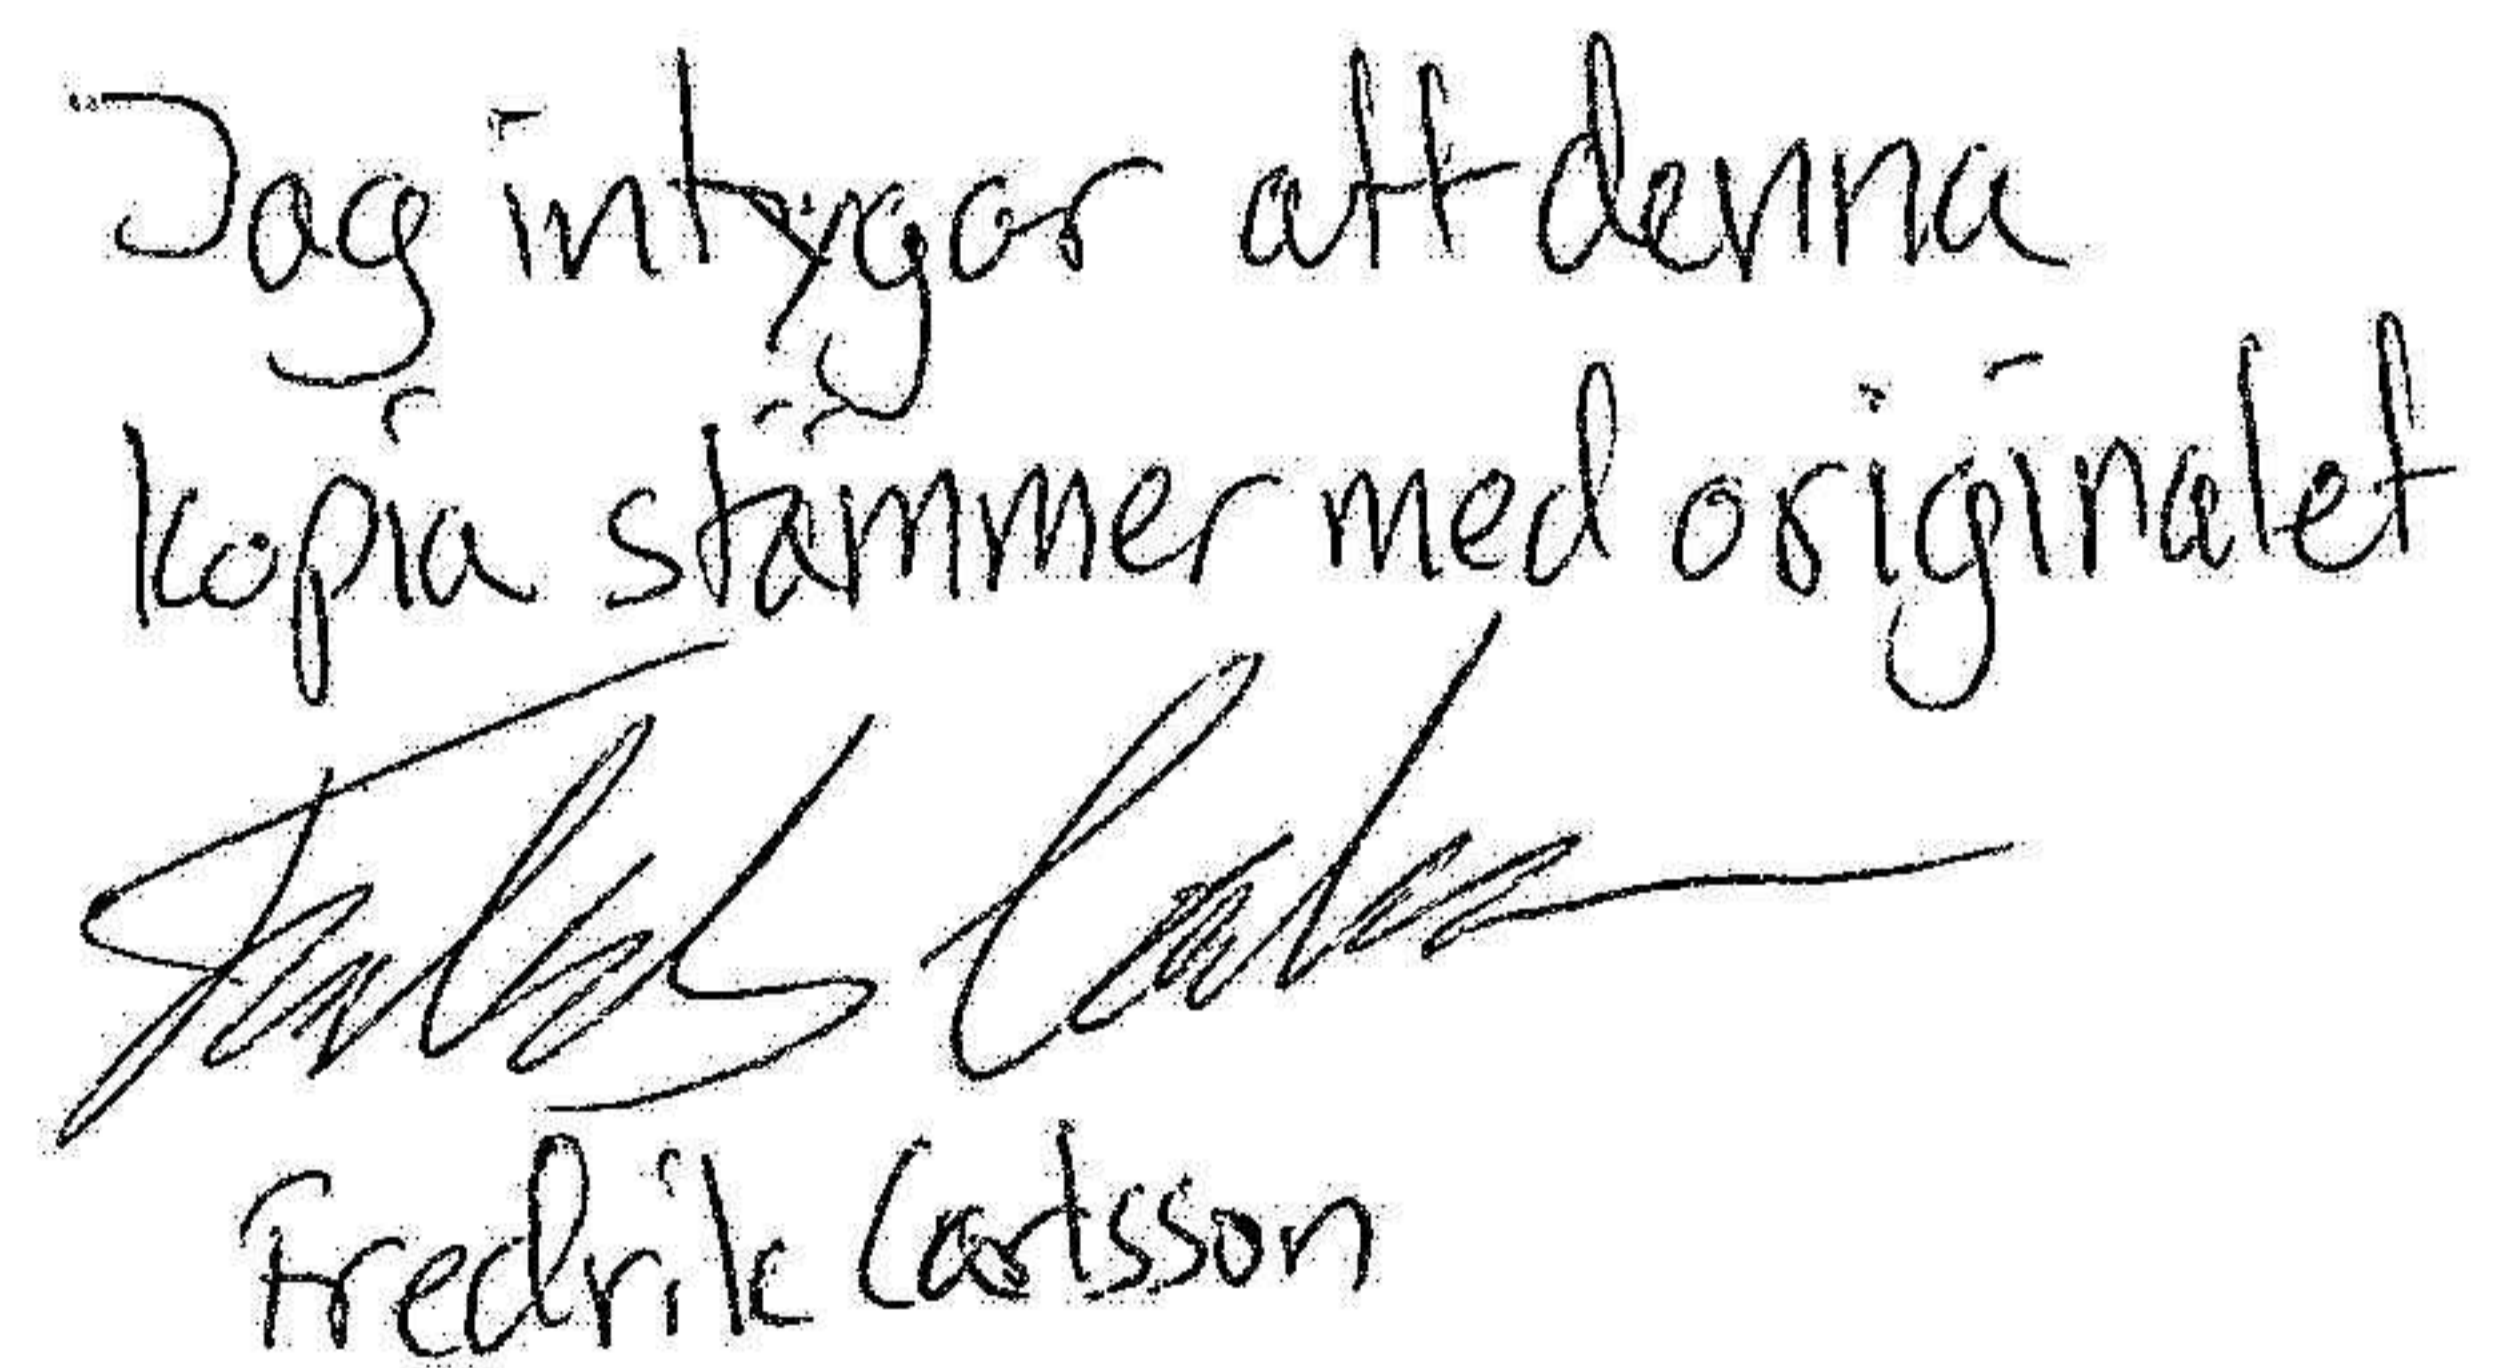 Jag intygar att denna
kopia stämmer med originalet
Fredrik Carlsson